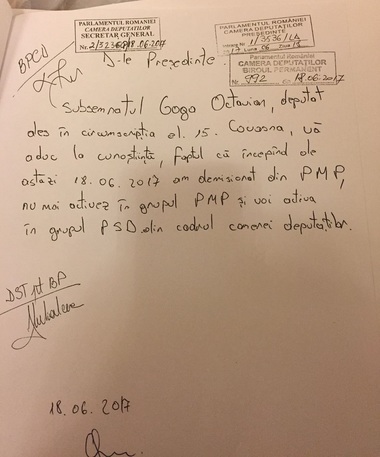 PARLAMENTUL ROMANIEI
CAMERA DEPUTAȚILOR
SECRETAR GENERAL
18.06.2017
PARLAMENTUL ROMÂNIEI
CAMERA DEPUTAȚILOR
PREȘEDINTE
Parlamentul României
CAMERA DEPUTAȚILOR
BIROUL PERMANENT
Nr. 992 18.06.2017
BPCD
D-le Președinte
Subsemnatul Goga Octavian, deputat
ales în circumscripția el. 15. Covasna, vă
aduc la cunoștință, faptul că începînd de
astăzi 18.06.2017 am demisionat din PMP,
nu mai activez în grupul PMP și voi activa
în grupul PSD din cadrul camerei deputaților.
BP
18.06.2017